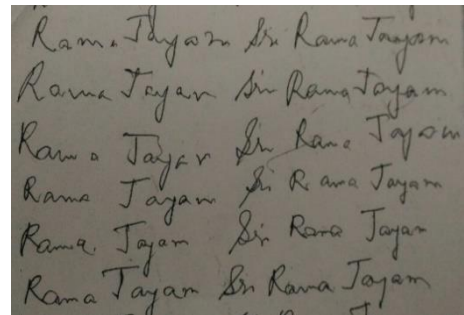 Rama Jayam Sri Rama Jayam
Rama Jayam Sri Rama Jayam
Rama Jayam Sri Rama Jayam
Rama Jayam Sri Rama Jayam
Rama Jayam Sri Rama Jayam
Rama Jayam Sri Rama Jayam